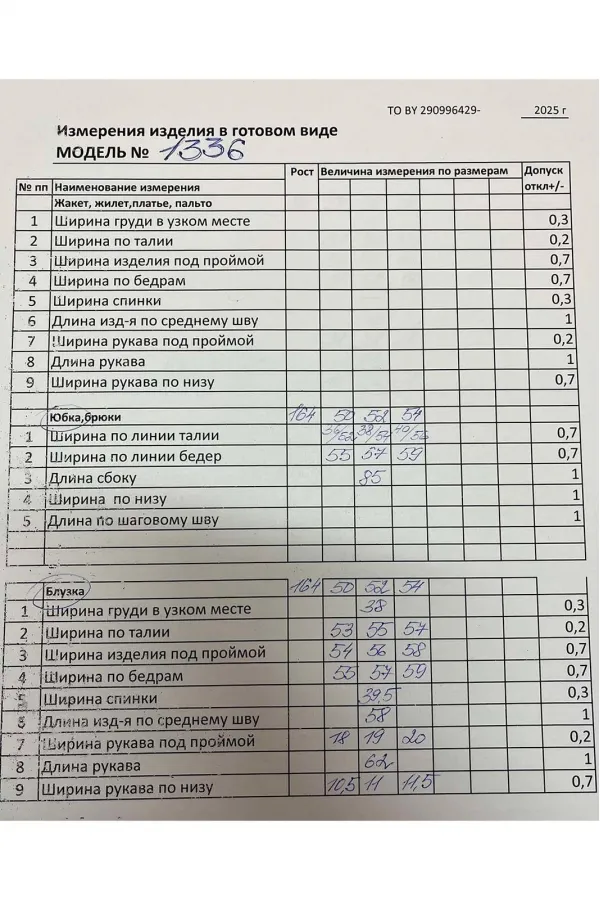 ТО BY 290996429- 2025 г
Измерения изделия в готовом виде
МОДЕЛЬ № 1336
Рост Величина измерения по размерам Допуск
№ пп Наименование измерения откл+/-
Жакет, жилет,платье, пальто
1 Ширина груди в узком месте 0,3
2 Ширина по талии 0,2
3 Ширина изделия под проймой 0,7
4 Ширина по бедрам 0,7
5 Ширина спинки 0,3
6 Длина изд-я по среднему шву 1
7 Ширина рукава под проймой 0,2
8 Длина рукава 1
9 Ширина рукава по низу 0,7
Юбка,брюки 164 50 52 54
1 Ширина по линии талии 36/52 38/54 40/56 0,7
2 Ширина по линии бедер 55 57 59 0,7
3 Длина сбоку 85 1
4 Ширина по низу 1
5 Длина по шаговому шву 1
Блузка 164 50 52 54
1 Ширина груди в узком месте 38 0,3
2 Ширина по талии 53 55 57 0,2
3 Ширина изделия под проймой 54 56 58 0,7
4 Ширина по бедрам 55 57 59 0,7
5 Ширина спинки 39,5 0,3
6 Длина изд-я по среднему шву 58 1
7 Ширина рукава под проймой 18 19 20 0,2
8 Длина рукава 62 1
9 Ширина рукава по низу 10,5 11 11,5 0,7